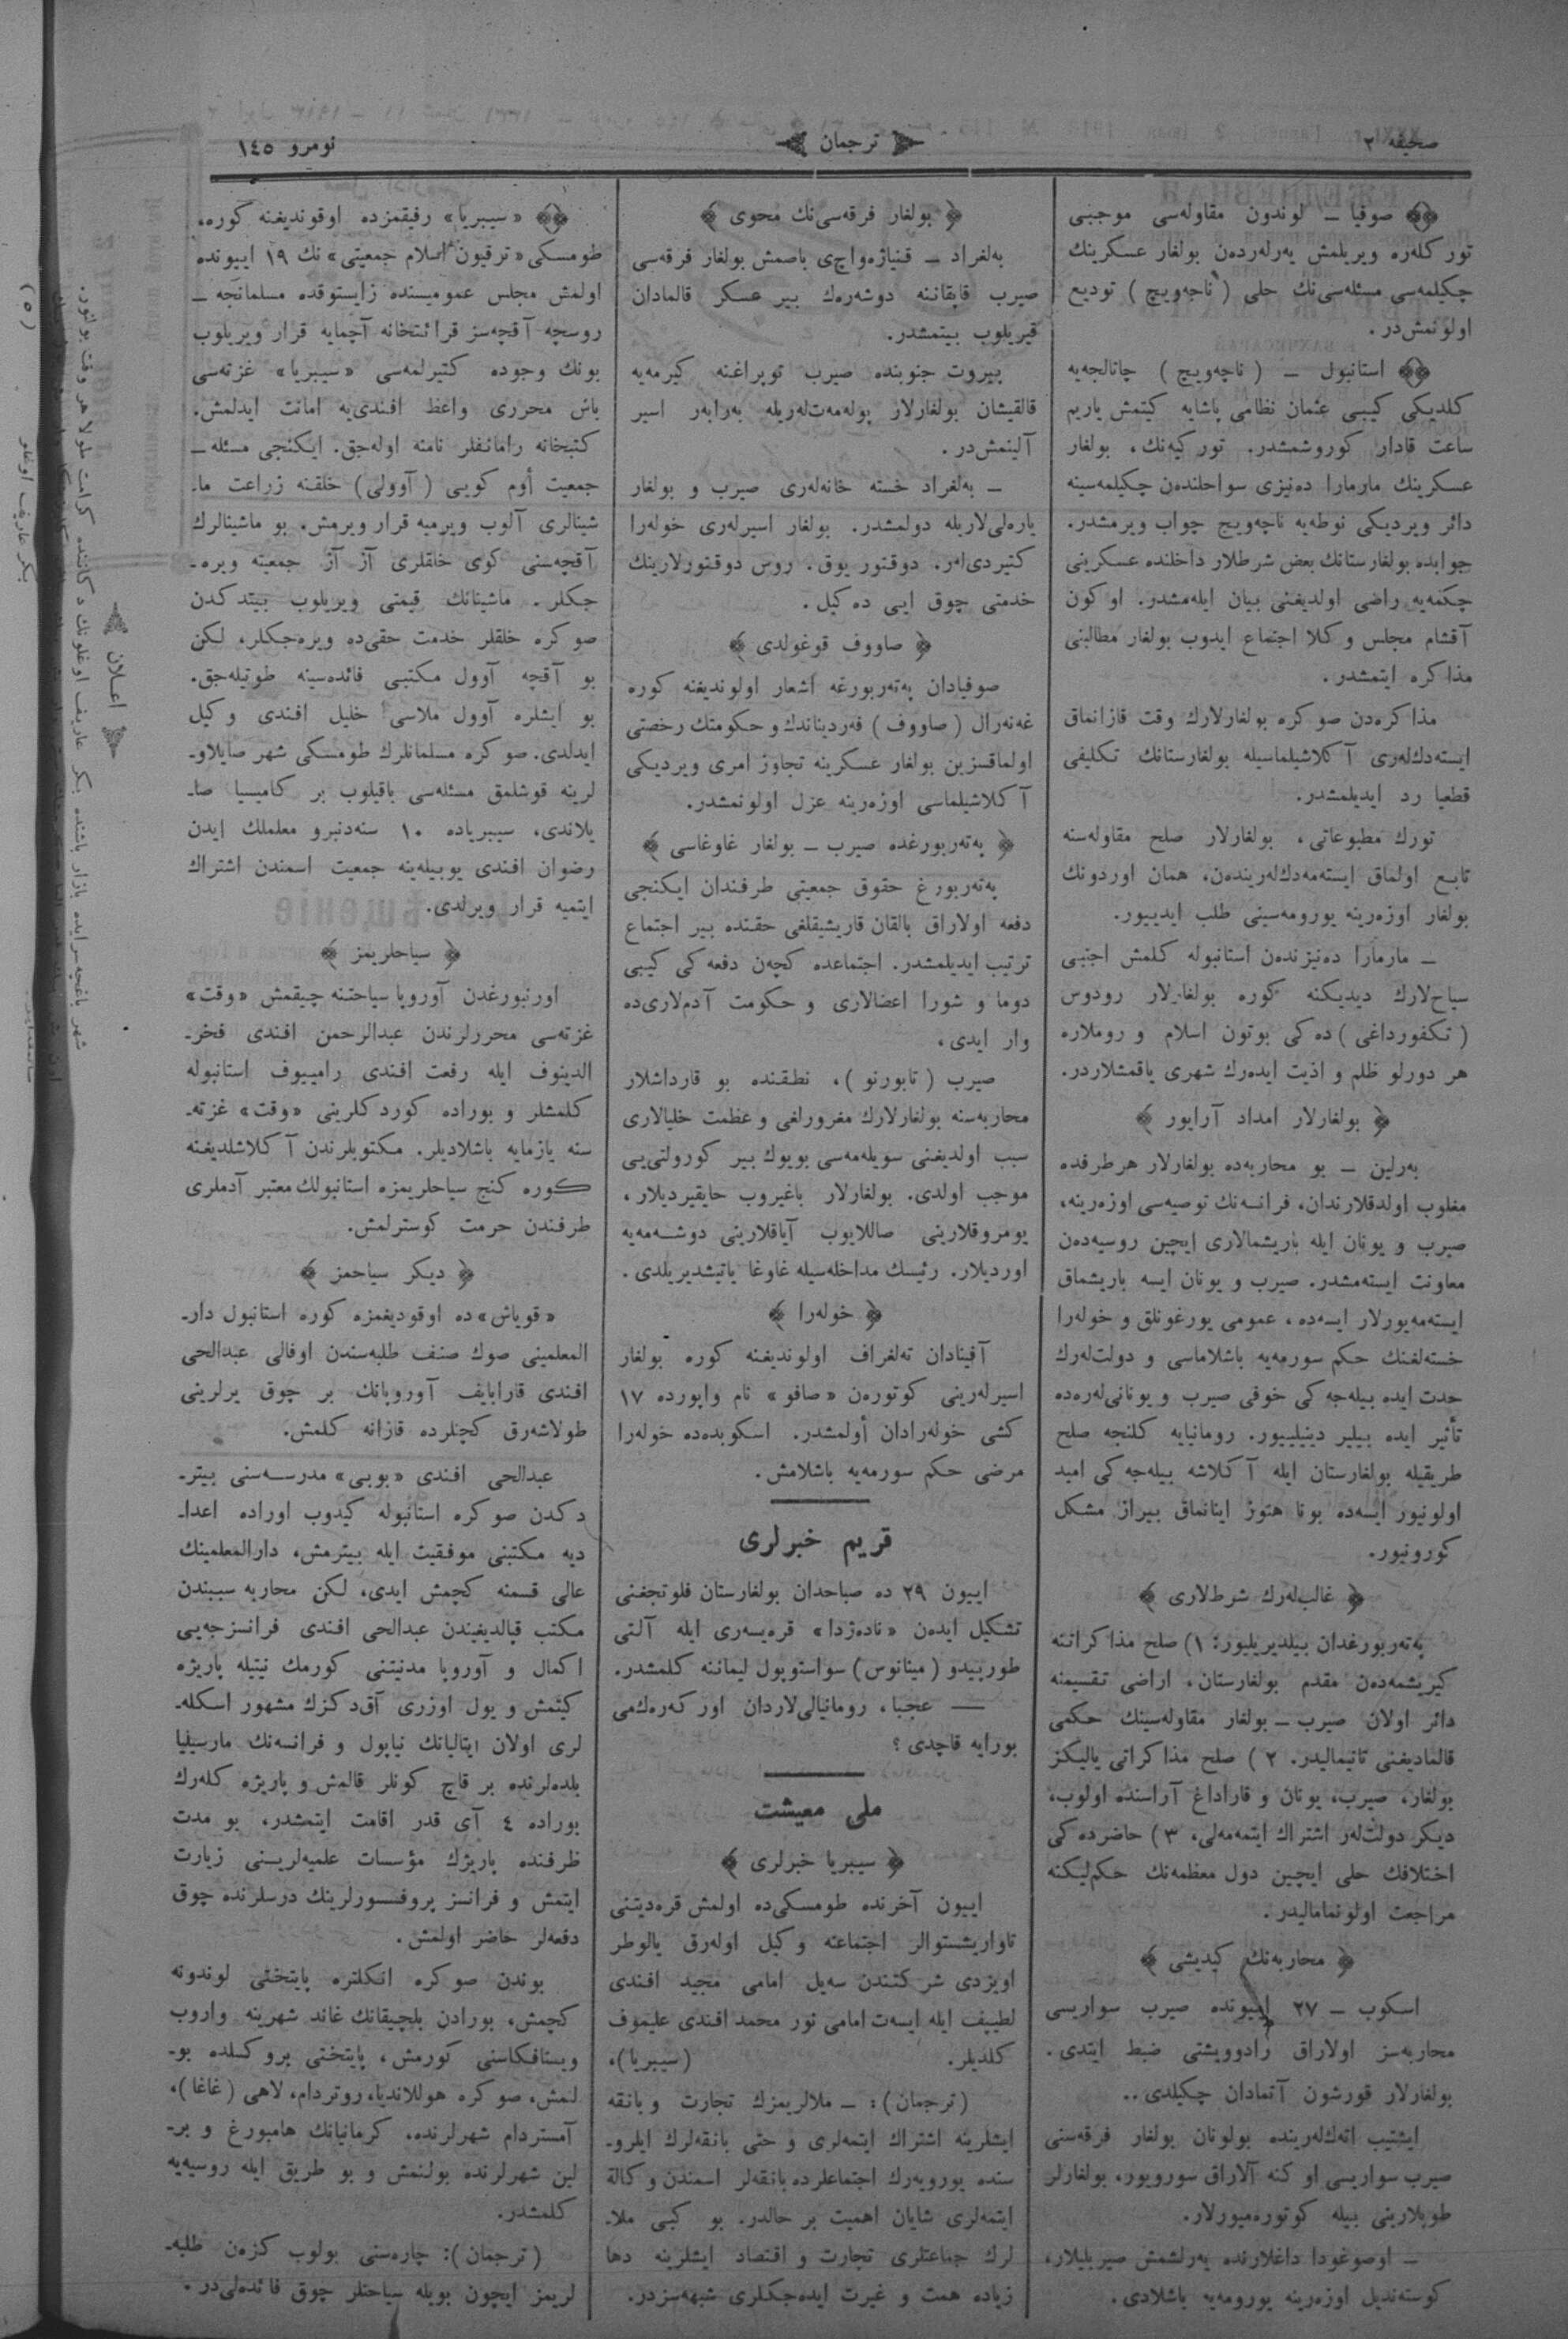 صحیفه ٢
ترجمان
نومرو ١٤٥
صوفیا ــ لوندون مقاوله‌سی موجبی
تورکلەره ویریلمش یەرلەردەن بولغار عسکرینك
چکیلمەسی مسئلەسی‌نك حلی (ناچەویچ) تودیع
اولونمش‌در.
استانبول ــ (ناچەویچ) چاتالجەیه
کلدیکی کیبی عثمان نظامی پاشایه کیتمش یاریم
ساعت قادار کوروشمشدر. تورکیەنك، بولغار
عسکرینك مارمارا دەنیزی سواحلندەن چکیلمەسینه
دائر ویردیکی نوطەیه ناچەویچ جواب ویرمشدر.
جوابده بولغارستانك بعض شرطلار داخلنده عسکرینی
چکمەیه راضی اولدیغنی بیان ایلەمشدر. او کون
آقشام مجلس وکلا اجتماع ایدوب بولغار مطالبنی
مذاکره ایتمشدر.
مذاکرەدن صوکره بولغارلارك وقت قازانماق
ایستەدكلەری آکلاشیلماسیله بولغارستانك تکلیفی
قطعیا رد ایدیلمشدر.
تورك مطبوعاتی، بولغارلار صلح مقاولەسنه
تابع اولماق ایستەمەدكلەریندەن، همان اوردونك
بولغار اوزەرینه یورومەسینی طلب ایدییور.
ــ مارمارا دەنیزندەن استانبوله کلمش اجنبی
سیاح‌لارك دیدیکنه کوره بولغارلار رودوس
(تکفورداغی) دەکی بوتون اسلام و روملاره
هر دورلو ظلم و اذیت ایدەرك شهری یاقمشلاردر.
بولغارلار امداد آرایور
بەرلین ــ بو محاربەده بولغارلار هر طرفده
مغلوب اولدقلارندان، فرانسەنك توصیەسی اوزەرینه،
صیرب و یونان ایله باریشمالاری ایچین روسیەدەن
معاونت ایستەمشدر. صیرب و یونان ایسه باریشماق
ایستەمەیورلار ایسەده، عمومی یورغونلق و خولەرا
خستەلغنك حکم سورمەیه باشلاماسی و دولت‌لەرك
حدت ایده بیلەجەکی خوفی صیرب و یونانی‌لەرەده
تأثیر ایده بیلیر دینیلییور. رومانیایه کلنجه صلح
طریقیله بولغارستان ایله آکلاشه بیلەجەکی امید
اولونیور ایسەده بونا هنوز اینانماق بیراز مشکل
کورونیور.
غالب‌لەرك شرط‌لاری
پەتەربورغدان بیلدیریلیور: ١) صلح مذاکراتنه
کیریشمەدەن مقدم بولغارستان، اراضی تقسیمنه
دائر اولان صیرب ــ بولغار مقاولەسینك حکمی
قالمادیغنی تانیمالیدر. ٢) صلح مذاکراتی یالیکز
بولغار، صیرب، یونان و قاراداغ آراسنده اولوب،
دیکر دولت‌لەر اشتراك ایتمەمەلی، ٣) حاضردەکی
اختلافك حلی ایچین دول معظمەنك حکملیکنه
مراجعت اولونمامالیدر.
محاربەنك کیدیشی
اسکوب ــ ٢٧ اییونده صیرب سواریسی
محاربەسز اولاراق رادوویشتی ضبط ایتدی.
بولغارلار قورشون آتمادان چکیلدی..
ایشتیب اتەكلەرینده بولونان بولغار فرقەسنی
صیرب سواریسی اوکنه آلاراق سورویور، بولغارلر
طوپلارینی بیله کوتورەمیورلار.
ــ اوصوغودا داغلارنده یەرلشمش صیربلیلار،
کوستەندیل اوزەرینه یورومەیه باشلادی.
بولغار فرقەسی‌نك محوی
بەلغراد ــ قنیاژەواچ‌ی باصمش بولغار فرقەسی
صیرب قاپقاننه دوشەرەك بیر عسکر قالمادان
قیریلوب بیتمشدر.
پیروت جنوبنده صیرب توپراغنه کیرمەیه
قالقیشان بولغارلار پولەمەت‌لەریله بەرابەر اسیر
آلینمش‌در.
ــ بەلغراد خسته خانەلەری صیرب و بولغار
یارەلی‌لاریله دولمشدر. بولغار اسیرلەری خولەرا
کتیردی‌لەر. دوقتور یوق. روس دوقتورلارینك
خدمتی چوق ایی دەکیل.
صاووف قوغولدی
صوفیادان پەتەربورغه اشعار اولوندیغنه کوره
غەنەرال (صاووف) فەردیناندك و حکومتك رخصتی
اولماقسزین بولغار عسکرینه تجاوز امری ویردیکی
آکلاشیلماسی اوزەرینه عزل اولونمشدر.
پەتەربورغده صیرب ــ بولغار غاوغاسی
پەتەربورغ حقوق جمعیتی طرفندان ایکنجی
دفعه اولاراق بالقان قاریشیقلغی حقنده بیر اجتماع
ترتیب ایدیلمشدر. اجتماعده کچەن دفعەکی کیبی
دوما و شورا اعضالاری و حکومت آدم‌لاری‌ده
وار ایدی،
صیرب (تابورنو)، نطقنده بو قارداشلار
محاربەسنه بولغارلارك مغرورلغی و عظمت خلیالاری
سبب اولدیغنی سویلەمەسی بویوك بیر کورولتی‌یی
موجب اولدی. بولغارلار باغیروب حایقیردیلار،
یومروقلارینی صاللایوب آیاقلارینی دوشەمەیه
اوردیلار. رئیسك مداخلەسیله غاوغا یاتیشدیریلدی.
خولەرا
آفینادان تەلغراف اولوندیغنه کوره بولغار
اسیرلەرینی کوتورەن «صافو» نام واپورده ١٧
کشی خولەرادان أولمشدر. اسکوبدەده خولەرا
مرضی حکم سورمەیه باشلامش.
قریم خبرلری
اییون ٢٩ ده صباحدان بولغارستان فلوتجغنی
تشکیل ایدەن «نادەژدا» قرەیسەری ایله آلتی
طورپیدو (مینانوس) سواستوپول لیماننه کلمشدر.
ــ عجبا، رومانیالی‌لاردان اورکەرەك‌می
بورایه قاچدی؟
ملی معیشت
سیبریا خبرلری
اییون آخرنده طومسکی‌ده اولمش قرەدیتنی
تاواریشستوالر اجتماعنه وکیل اولەرق یالوطر
اویزدی شرکتندن سەیل امامی مجید افندی
لطیپف ایله ایسەت امامی نور محمد افندی علیموف
کلدیلر. (سیبریا)،
(ترجمان): ــ ملالریمزك تجارت و بانقه
ایشلرینه اشتراك ایتمەلری و حتی بانقەلرك ایلروــ
سنده یورویەرك اجتماعلرده بانقەلر اسمندن وکالة
ایتمەلری شایان اهمیت بر حالدر. بو کبی ملاــ
لرك جماعتلری تجارت و اقتصاد ایشلرینه دها
زیاده همت و غیرت ایدەجکلری شبهەسزدر.
«سیبریا» رفیقمزده اوقوندیغنه کوره،
طومسکی «ترقیون اسلام جمعیتی» نك ١٩ اییونده
اولمش مجلس عمومیسنده زایستوقده مسلمانجه ــ
روسچه آقچەسز قرائتخانه آچمایه قرار ویریلوب
بونك وجوده کتیرلمەسی «سیبریا» غزتەسی
باش محرری واعظ افندی‌یه امانت ایدلمش.
کتبخانه رامانفلر نامنه اولەجق. ایکنجی مسئله ــ
جمعیت أوم کویی (آوولی) خلقنه زراعت ماــ
شینالری آلوب ویرمیه قرار ویرمش. بو ماشینالرك
آقچەسنی کوی خلقلری آز آز جمعیته ویرەــ
جکلر. ماشینانك قیمتی ویریلوب بیتدکدن
صوکره خلقلر خدمت حقی‌ده ویرەجکلر، لکن
بو آقچه آوول مکتبی فائدەسینه طوتیلەجق.
بو ایشلره آوول ملاسی خلیل افندی وکیل
ایدلدی. صوکره مسلمانلرك طومسکی شهر صایلاوــ
لرینه قوشلمق مسئلەسی باقیلوب بر کامیسیا صاــ
یلاندی، سیبریاده ١٠ سنەدنبرو معلملك ایدن
رضوان افندی یوبیلەینه جمعیت اسمندن اشتراك
ایتمیه قرار ویرلدی.
سیاحلریمز
اورنبورغدن آوروپا سیاحتنه چیقمش «وقت»
غزتەسی محررلرندن عبدالرحمن افندی فخرــ
الدینوف ایله رفعت افندی رامییوف استانبوله
کلمشلر و بوراده کوردکلرینی «وقت» غزتەــ
سنه یازمایه باشلادیلر. مکتوبلرندن آکلاشلدیغنه
کوره کنج سیاحلریمزه استانبولك معتبر آدملری
طرفندن حرمت کوسترلمش.
دیکر سیاحمز
«قویاش»ده اوقودیغمزه کوره استانبول دارــ
المعلمینی صوك صنف طلبەسندن اوفالی عبدالحی
افندی قارابایف آوروپانك بر چوق یرلرینی
طولاشەرق کچنلرده قازانه کلمش.
عبدالحی افندی «بوبی» مدرسەسنی بیترــ
دکدن صوکره استانبوله کیدوب اوراده اعداــ
دیه مکتبنی موفقیت ایله بیترمش، دارالمعلمینك
عالی قسمنه کچمش ایدی، لکن محاربه سببندن
مکتب قپالدیغیندن عبدالحی افندی فرانسزجەیی
اکمال و آوروپا مدنیتنی کورمك نیتیله پاریژه
کیتمش و یول اوزری آق‌دکزك مشهور اسکلەــ
لری اولان ایتالیانك نیاپول و فرانسەنك مارسیلیا
بلدەلرنده بر قاچ کونلر قالمش و پاریژه کلەرك
بوراده ٤ آی قدر اقامت ایتمشدر، بو مدت
ظرفنده پاریژك مؤسسات علمیەلریـنی زیارت
ایتمش و فرانسز پروفسورلرینك درسلرنده چوق
دفعەلر حاضر اولمش.
بوندن صوکره انکلتره پایتختی لوندونه
کچمش، بورادن بلچیقانك غاند شهرینه واروب
ویستافکاسنی کورمش، پایتختی بروکسلده بوــ
لنمش، صوکره هوللاندیا، روتردام، لاهی (غاغا)،
آمستردام شهرلرنده، کرمانیانك هامبورغ و برــ
لین شهرلرنده بولنمش و بو طریق ایله روسیەیه
کلمشدر.
(ترجمان): چارەسنی بولوب کزەن طلبەــ
لریمز ایچون بویله سیاحتلر چوق فائدەلی‌در.
اعلان
شهر باغچەسرایده بازار باشنده بکر عاریف اوغلونك دکاننده کرامت ملولا هر وقت بولنور.
بکر عاریف اوغلو
(٥)